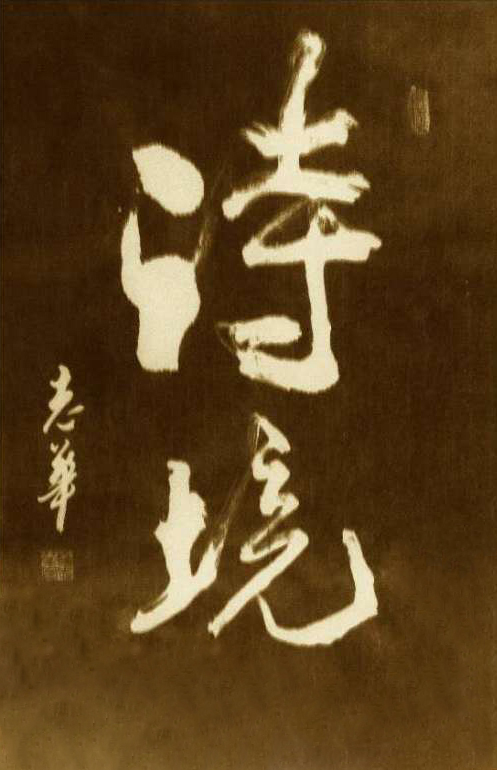 诗境
志華